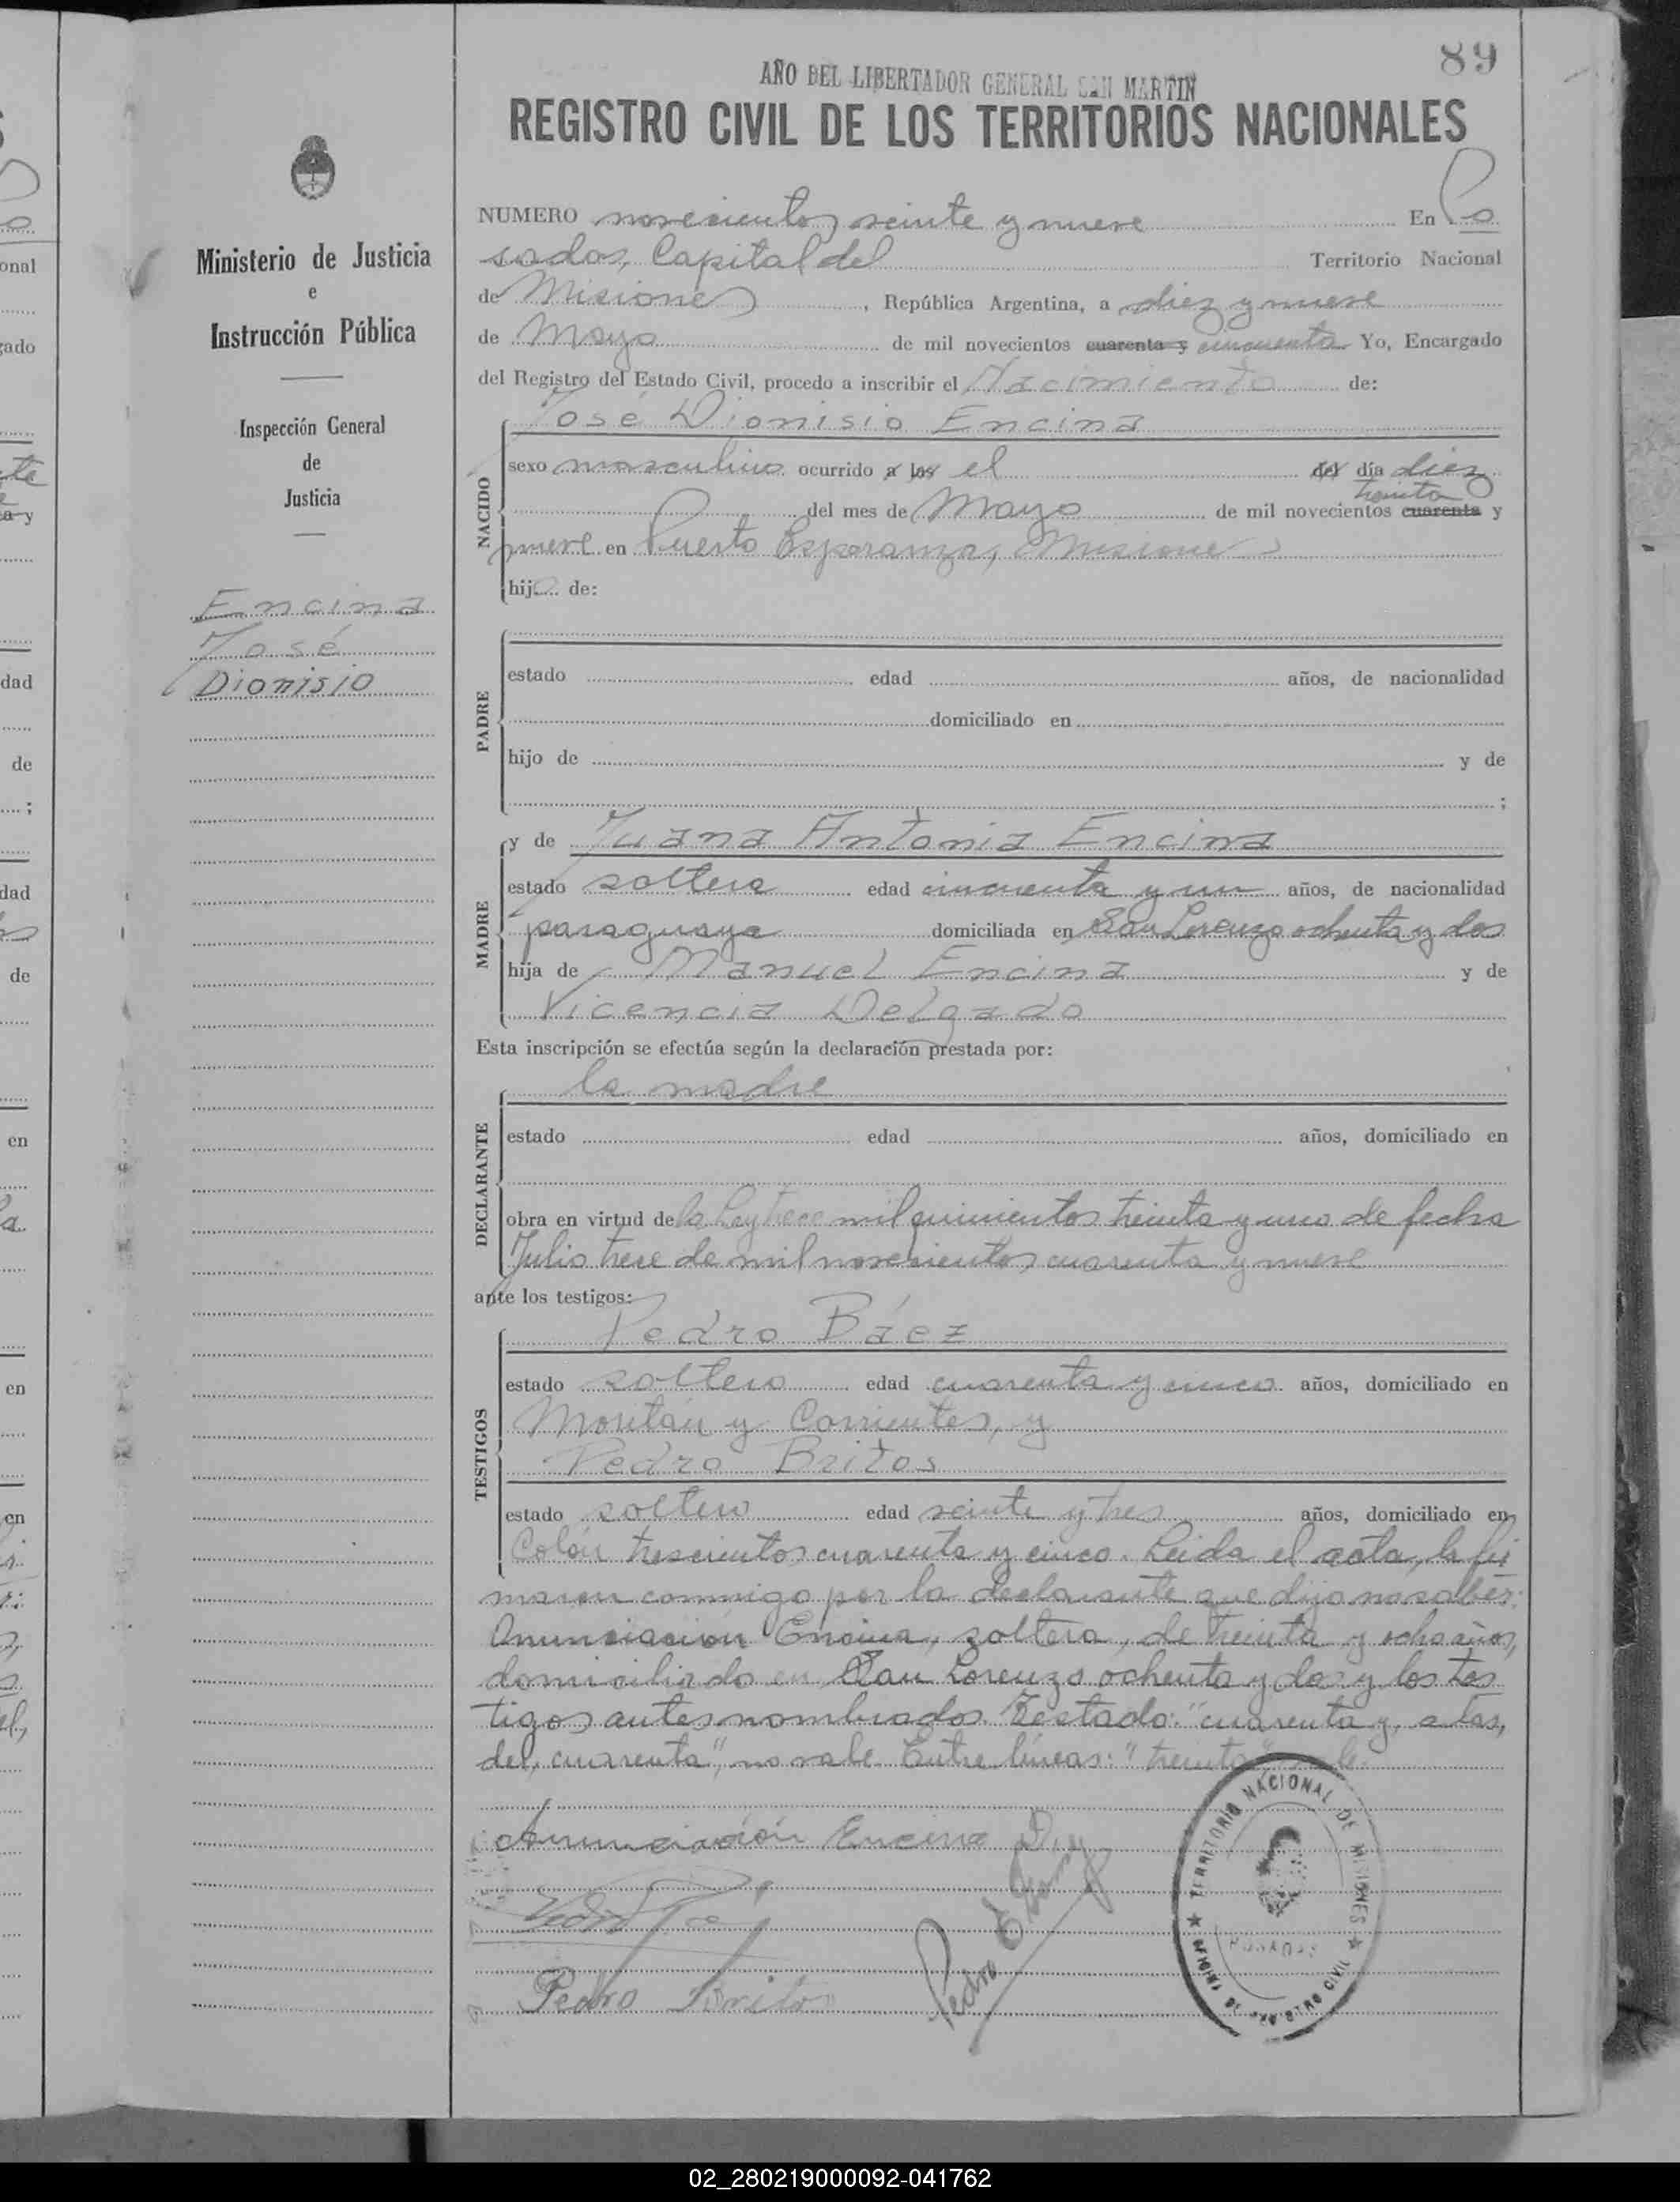 89
AÑO DEL LIBERTADOR GENERAL SAN MARTIN
REGISTRO CIVIL DE LOS TERRITORIOS NACIONALES
Ministerio de Justicia
e
Instrucción Pública
Inspección General
de
Justicia
Encina
José
Dionisio
NUMERO novecientos veinte y nueve En Po
sadas, Capital del Territorio Nacional
de Misiones, República Argentina, a diez y nueve
de Mayo de mil novecientos cuarenta y cincuenta Yo, Encargado
del Registro del Estado Civil, procedo a inscribir el Nacimiento de:
José Dionisio Encina
NACIDO
sexo masculino ocurrido a las el del día diez
treinta
del mes de Mayo de mil novecientos cuarenta y
nueve en Puerto Esperanza, Misiones
hijo de:
PADRE
estado edad años, de nacionalidad
domiciliado en
hijo de y de
;
MADRE
y de Juana Antonia Encina
estado soltera edad cincuenta y un años, de nacionalidad
paraguaya domiciliada en San Lorenzo ochenta y dos
hija de Manuel Encina y de
Vicencia Delgado
Esta inscripción se efectúa según la declaración prestada por:
la madre
DECLARANTE
estado edad años, domiciliado en
obra en virtud de la Ley trece mil quinientos treinta y uno de fecha
Julio trece de mil novecientos cuarenta y nueve
ante los testigos:
Pedro Báez
TESTIGOS
estado soltero edad cuarenta y cinco años, domiciliado en
y Corrientes, y
Pedro Britos
estado soltero edad veinte y tres años, domiciliado en
Colón trescientos cuarenta y cinco. Leida el acta, la fir
maron conmigo por la declarante que dijo no saber:
Anunciación Encina, soltera, de treinta y ocho años,
domiciliada en San Lorenzo ochenta y dos y los tes
tigos antes nombrados. Testado: "cuarenta y, a las,
del, cuarenta", no vale. Entre líneas: "treinta" vale.
Anunciación Encina D.
Pedro Britos
TERRITORIO NACIONAL DE MISIONES
POSADAS
REGISTRO CIVIL
02_280219000092-041762